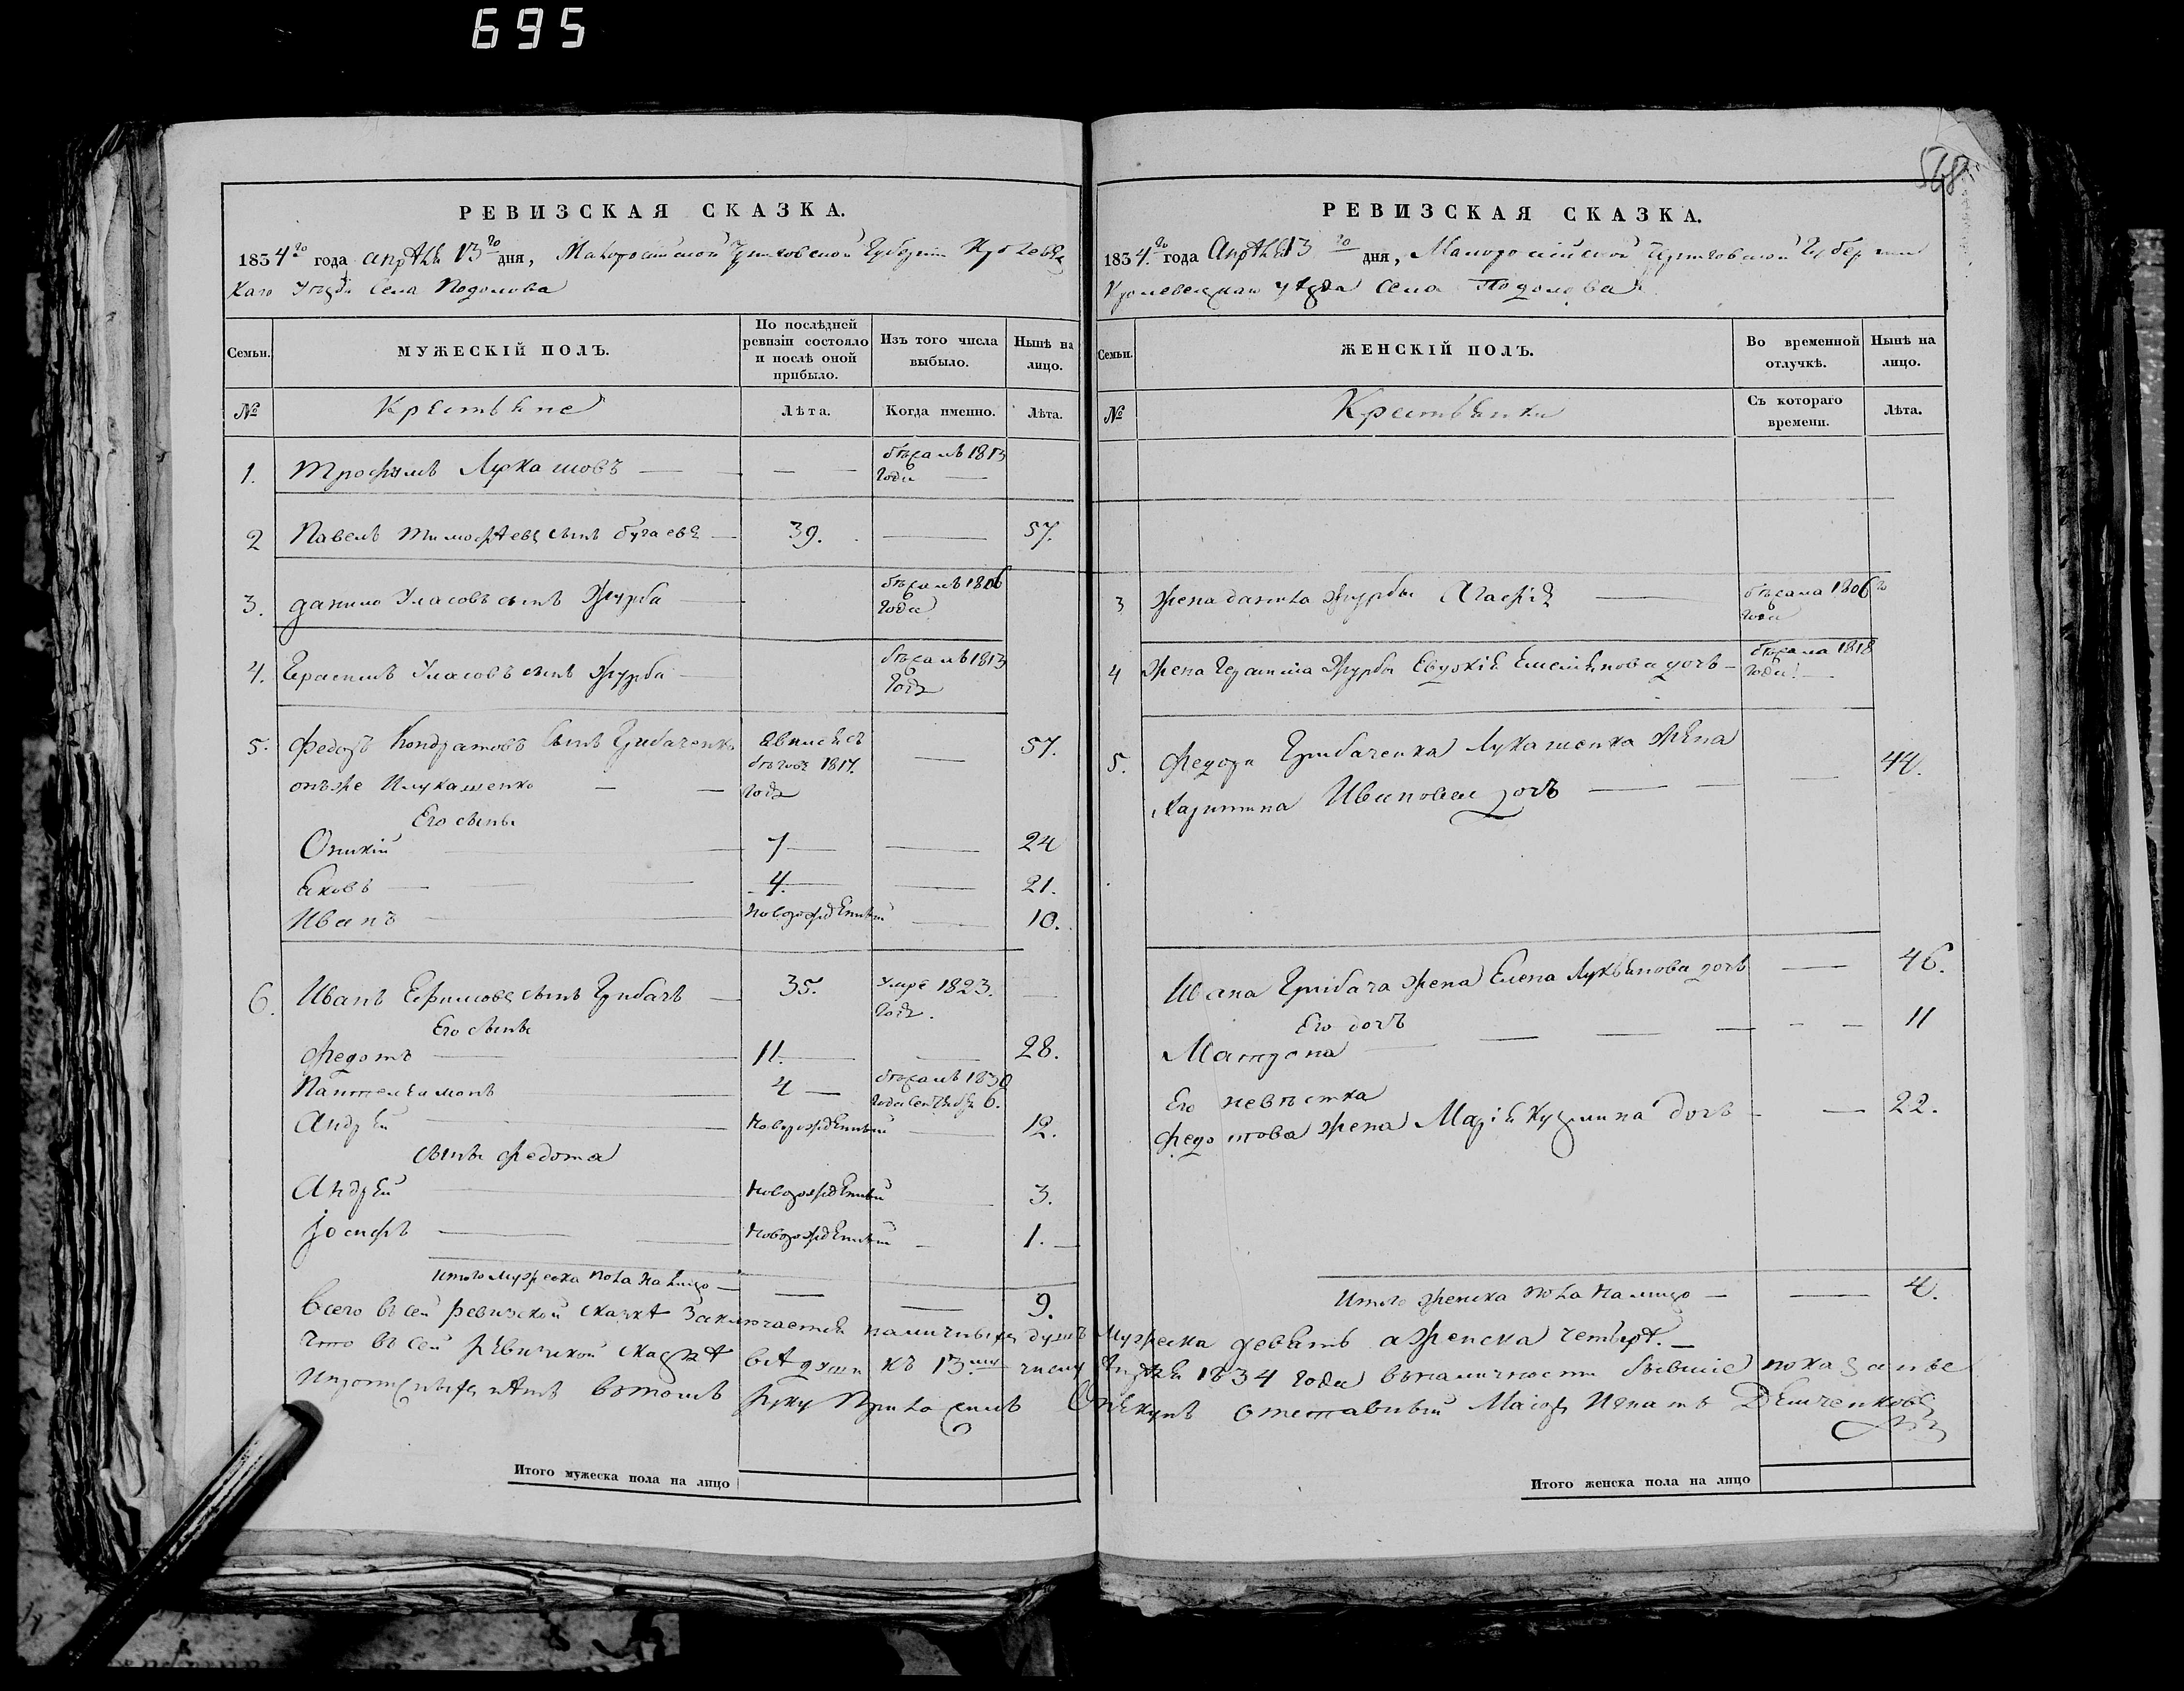 695
548
РЕВИЗСКАЯ СКАЗКА.
1834го года апрѣля 13го дня, Малоросiйской Черниговской Губернiи Кролевец
каго Уезда Села Подолова
Семьи.
МУЖЕСКІЙ ПОЛЪ.
По послѣдней ревизіи состояло и послѣ оной прибыло.
Изъ того числа выбыло.
Нынѣ на лицо.
№
Крестьяне
Лѣта.
Когда именно.
Лѣта.
1. Трофимъ Лукашовъ — — бѣжалъ 1813
года —
2 Павелъ Тимофѣевъ сынъ бугаевъ — 39. — 57.
3. данило Уласовъ сынъ Журба — бѣжалъ 1806
года
4. Герасимъ Уласовъ сынъ Журба — бѣжалъ 1813
года
5. Федоръ Кондратовъ сынъ Грибаченко явился съ 57.
бѣговъ 1817.
онъже Илукашенко — — года
Его сыны
Оникiй 7 — — 24
Яковъ — 4. — 21.
Иванъ новорожденный — 10.
6. Иванъ Ефимовъ сынъ Грибачъ — 35. Умре 1823.
года.
Его сыны
Федотъ — 11. — 28.
Пантелеимонъ 4 — бѣжалъ 1830
года сентября 6.
Андрей новорожденный — 12.
сыны Федота
Андрей новорожденный 3.
Iосифъ — новорожденный — 1. —
Итого мужеска пола на лицо — — — 9.
РЕВИЗСКАЯ СКАЗКА.
1834.го года Апрѣля 13го дня, Малоросiйской Черниговской Губернiи
Кролевецкаго уѣзда Села Подолова
Семьи.
ЖЕНСКІЙ ПОЛЪ.
Во временной отлучкѣ.
Нынѣ на лицо.
№
Крестьянки
Съ котораго времени.
Лѣта.
3 Жена данила Журбы Агафiя — бѣжала 1806го
года
4 Жена Герасима Журбы Евдокiя Емельянова дочъ — бѣжала 1818
года —
5. Федора Грибаченка Лукашенка жена — 44.
Харитина Иванова дочъ —
Ивана Грибача жена Елена Лукьянова дочъ — 46.
Его дочъ 11
Матрона — — — — —
Его невѣстка
Федотова жена Марiя Кузмина дочъ — — 22.
Итого женска пола на лицо — — 4.
Всего въ сей ревизской сказкѣ заключается наличныхъ душъ мужеска девять а женска четыре. —
Что въ сей ревизской сказкѣ всѣ души къ 13му числу Апрѣля 1834 года въ наличности бывшiе показаны
и нѣтъ въ томъ руку приложилъ Опекунъ отставный Маiоръ Игнатъ
Итого мужеска пола на лицо
Итого женска пола на лицо